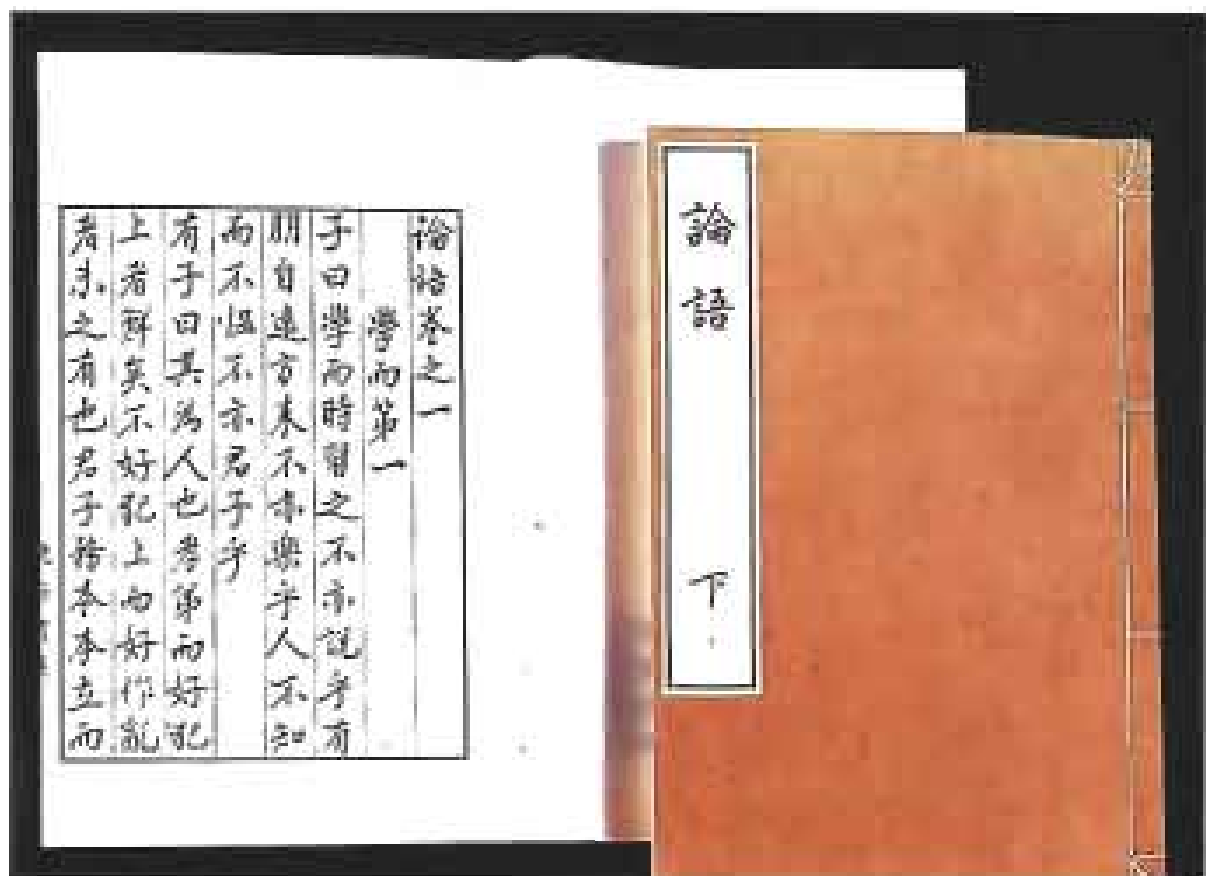 論語卷之一
學而第一
子曰學而時習之不亦說乎有
朋自遠方来不亦樂乎人不知
而不慍不亦君子乎
有子曰其為人也孝第而好犯
上者鮮矣不好犯上而好作亂
者未之有也君子務本本立而
論語
下